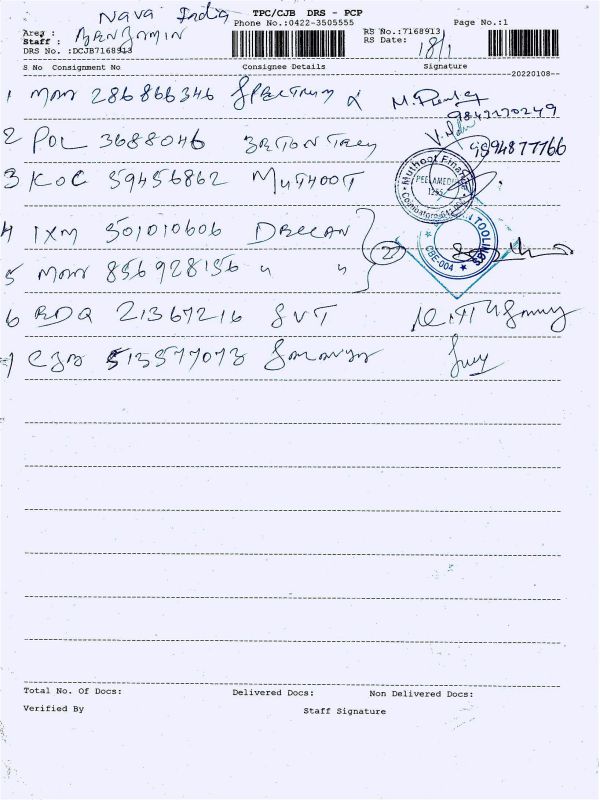 Nava India
TPC/CJB DRS - PCP
Area : Phone No.:0422-3505555 Page No.:1
Staff : BENJAMIN RS No.:7168913
DRS No. :DCJB7168913 RS Date: 18/1
S No Consignment No Consignee Details Signature
--20220108--
1 MAA 286866346 SPECTRUM
9842270249
2 POL 3688046
9894877766
3 KOC 59456862 MUTHOOT
Muthoot Finance
PEELAMEDU
Coimbatore
4 IXM 301010606 DECCAN
TOOLINGS
CBE-004
2
5 MAA 856928156 " "
6 BDQ 21367216 SVT
7 CJB 513577073
Total No. Of Docs: Delivered Docs: Non Delivered Docs:
Verified By Staff Signature